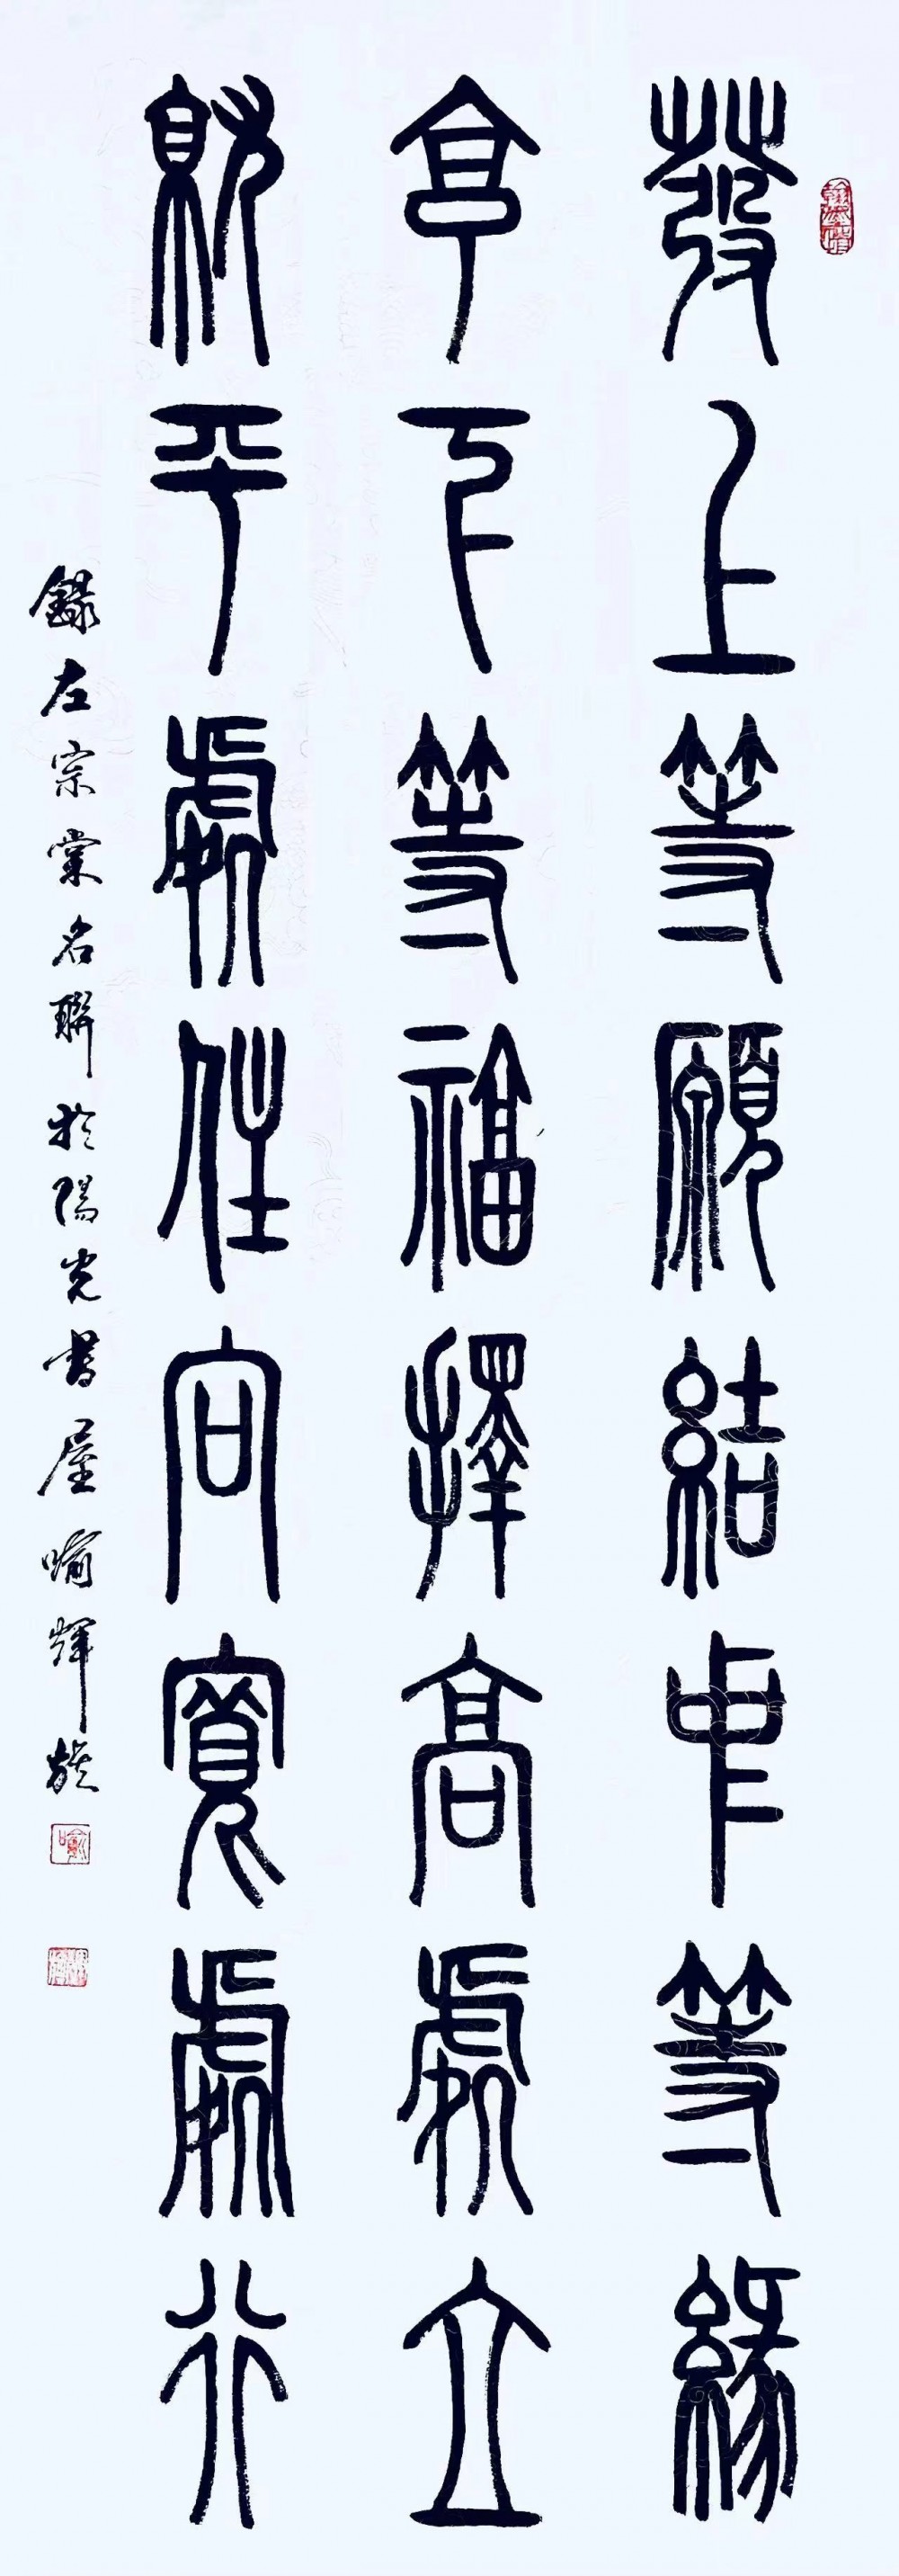 發上等願結中等緣
享下等福擇高處立
就平處住向寬處行
錄左宗棠名聯於陽光書屋喻輝族